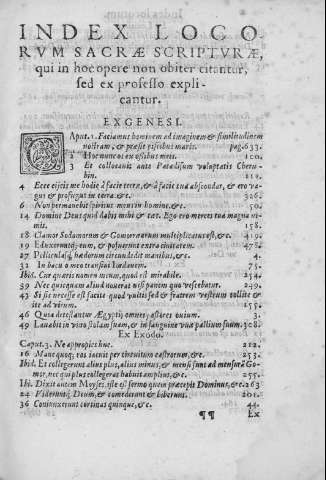 INDEX LOCO-
RVM SACRÆ SCRIPTVRÆ,
qui in hoc opere non obiter citantur,
sed ex professo expli-
cantur.
EX GENESI.
CAput. 1. Faciamus hominem ad imaginem & similitudinem
nostram, & præsit piscibus maris. pag. 633.
2 Hoc nunc os ex ossibus meis. 100.
3 Et collocauit ante Paradisum voluptatis Cheru-
bin. 212.
4 Ecce eijcis me hodie à facie terræ, & à facie tua abscondar, & ero va-
gus & profugus in terra: &c. 326.
6 Non permanebit spiritus meus in homine, &c. 50.
14 Domine Deus quid dabis mihi & cæt. Ego ero merces tua magna ni-
mis. 158.
18 Clamor Sodomorum & Gomorræorum multiplicatus est, &c. 119.
19 Eduxeruntq; eum, & posuerunt extra ciuitatem. 478.
27 Pelliculasq; hædorum circumdedit manibus, &c. 4.
32 In baculo meo transiui Iordanem. 75.
Ibid. Cur quæris nomen meum, quod est mirabile. 254.
39 Nec quicquam aliud nouerat nisi panem quo vescebatur. 249.
43 Si sic necesse est facite quod vultis sed & fratrem vestrum tollite &
ite ad virum. 155.
46 Quia detestantur Ægyptij omnes pastores ouium. 3.
49 Lauabit in vino stolam suam, & in sanguine vuæ pallium suum. 308.
Ex Exodo.
Caput. 3. Ne appropies huc. 212.
16 Mane quoq; ros iacuit per circuitum castrorum, &c. 253.
Ibid. Et collegerunt alius plus, alius minus, & mensi sunt ad mensuram Go-
mor, nec qui plus collegerat habuit amplius, &c. 255.
Ibi. Dixit autem Moyses, iste est sermo quem præcepit Dominus, &c. 263
24 Viderunt Deum, & comederunt & biberunt. 201.
36 Coniunxerunt cortinas quinque, &c. 44.
¶¶ Ex